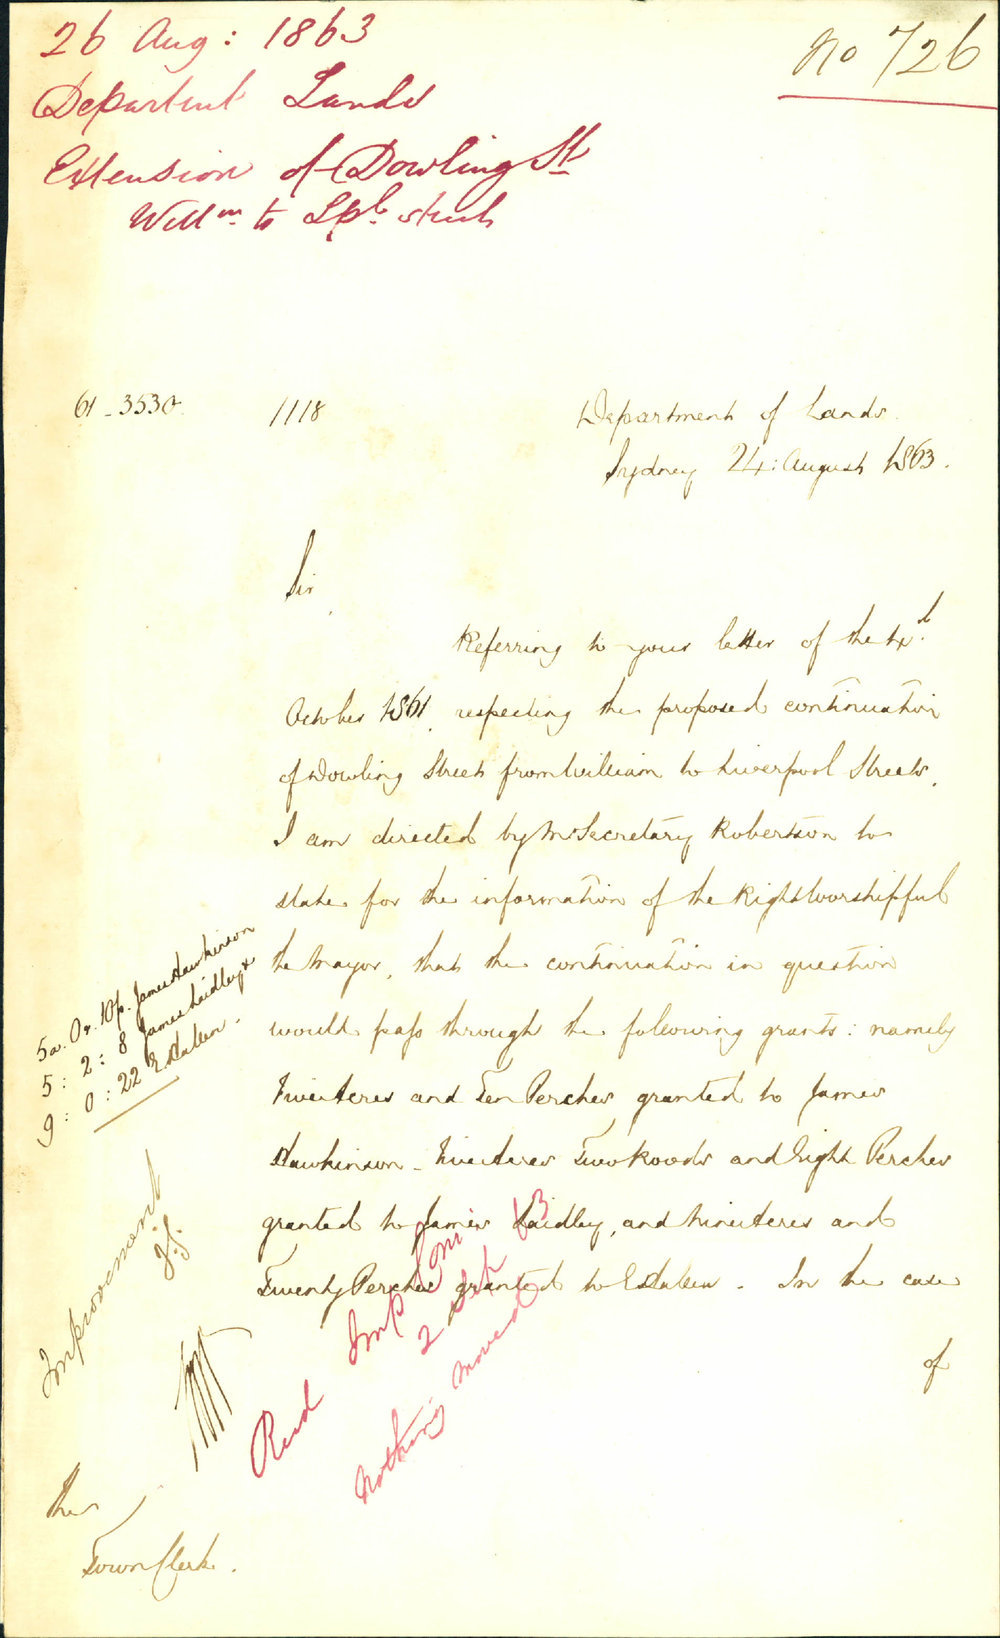 26 Aug: 1863
No 726
Department Lands
Extension of Dowling St
Willm. to Lpl. streets
61-3530
1118
Department of Lands.
Sydney 24: August 1863.
Sir
Referring to your letter of the
October 1861, respecting the proposed continuation
of Dowling Street from William to Liverpool Streets,
I am directed by Mr Secretary Robertson to
state for the information of the Right Worshipful
the Mayor, that the continuation in question
would pass through the following grants: namely
Five Acres and Ten Perches granted to James
Hawkinson - Five Acres Two Roods and Eight Perches
granted to James Laidley, and Nine Acres and
Twenty Perches granted to E Hallen. In the case
of
5a. 0r. 10p. James Hawkinson
5: 2: 8 James Laidley &
9: 0: 22 E Hallen.
Improvement
Read Imp Com
2 Sep 63
Nothing moved
The
Town Clerk.